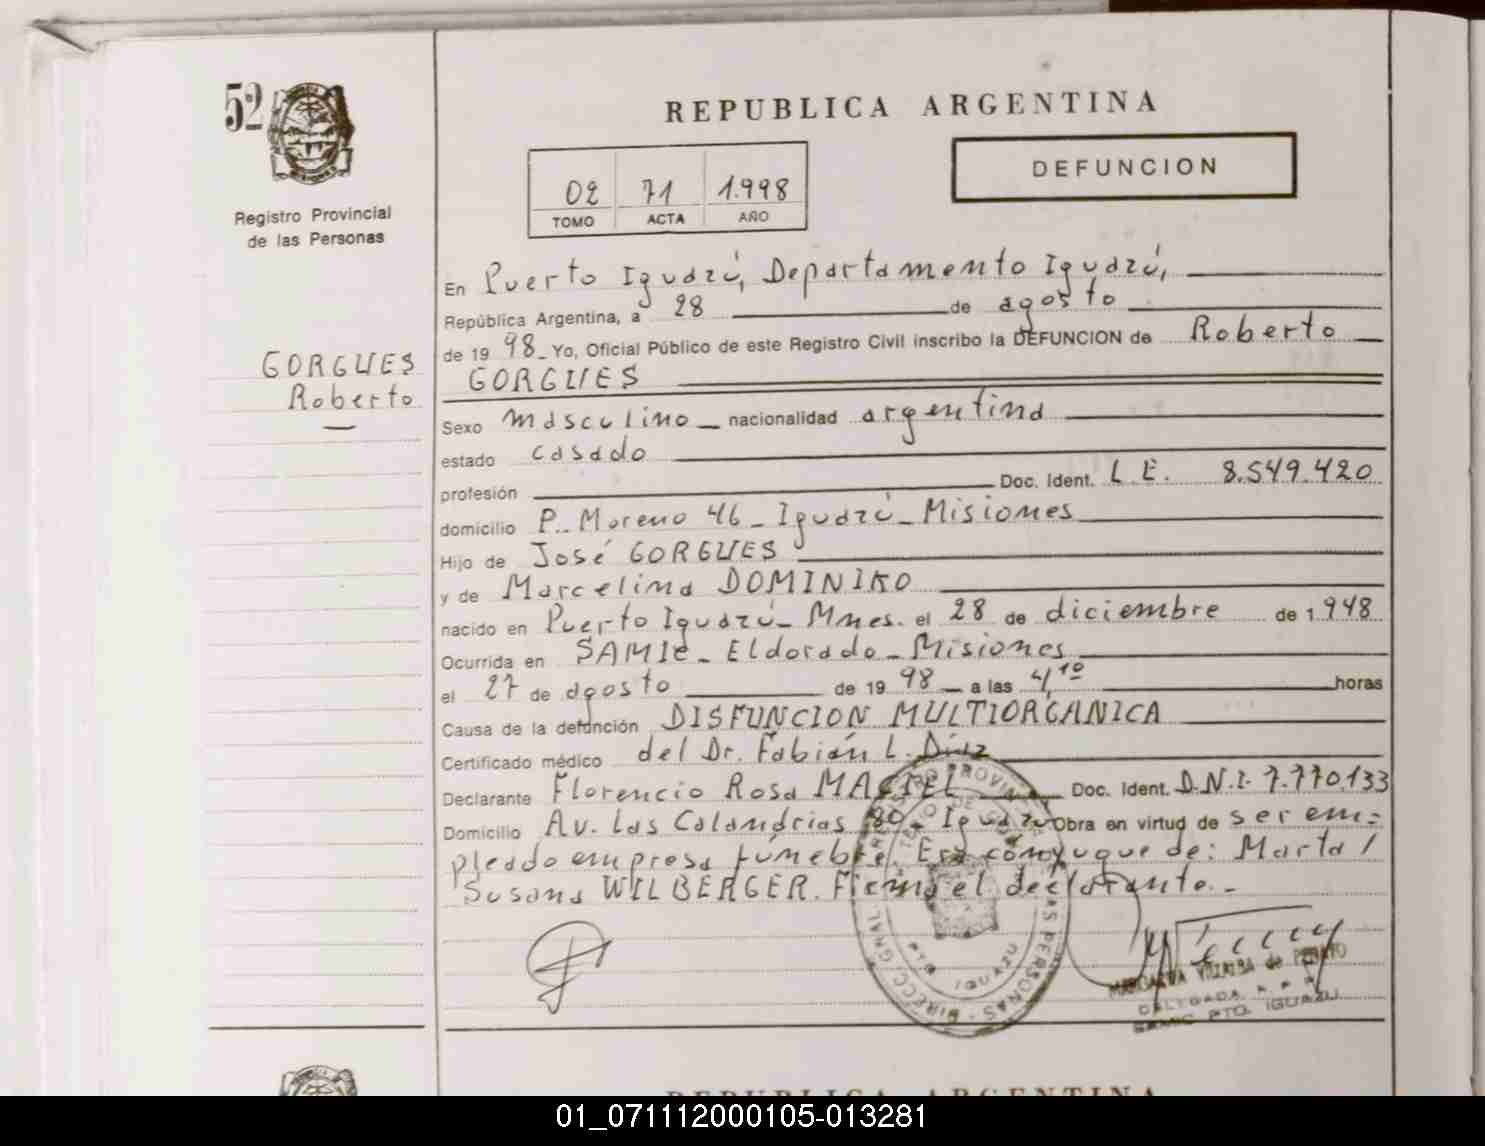 52
REPUBLICA ARGENTINA
DEFUNCION
02 71 1.998
TOMO ACTA AÑO
Registro Provincial
de las Personas
GORGUES
Roberto
En Puerto Iguazú, Departamento Iguazú,
República Argentina, a 28 de agosto
de 19 98 Yo, Oficial Público de este Registro Civil inscribo la DEFUNCION de Roberto
GORGUES
Sexo masculino nacionalidad argentina
estado casado
profesión Doc. Ident. L.E. 8.549.420
domicilio P. Moreno 46 - Iguazú - Misiones
Hijo de José GORGUES
y de Marcelina DOMINIKO
nacido en Puerto Iguazú - Mnes. el 28 de diciembre de 1.948
Ocurrida en SAMIC - Eldorado - Misiones
el 27 de agosto de 19 98 a las 4,10 horas
Causa de la defunción DISFUNCION MULTIORGANICA
Certificado médico del Dr. Fabián L. Díaz
Declarante Florencio Rosa MACIEL Doc. Ident. D.N.I. 7.770.133
Domicilio Av. Las Calandrias 80 - Iguazú Obra en virtud de ser em=
pleado empresa fúnebre. Era conyugue de: Marta /
Susana WILBERGER. Firma el declarante. -
PTO IGUAZU
DELEGADA R. P. P.
SAMIC PTO. IGUAZU
REPUBLICA ARGENTINA
01_071112000105-013281